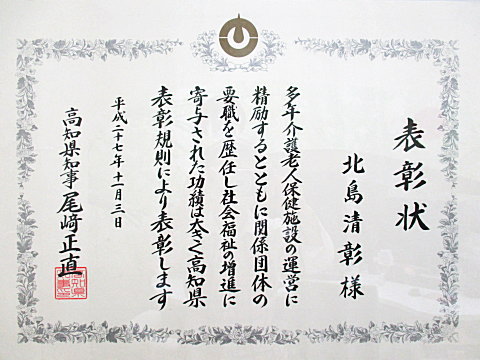 表彰状
北島清彰様
多年介護老人保健施設の運営に
精励するとともに関係団体の
要職を歴任し社会福祉の増進に
寄与された功績は大きく高知県
表彰規則により表彰します
平成二十七年十一月三日
高知県知事 尾﨑正直